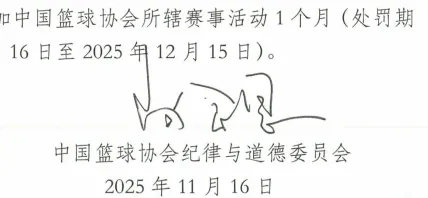 加中国篮球协会所辖赛事活动1个月（处罚期
16日至2025年12月15日）。
中国篮球协会纪律与道德委员会
2025年11月16日